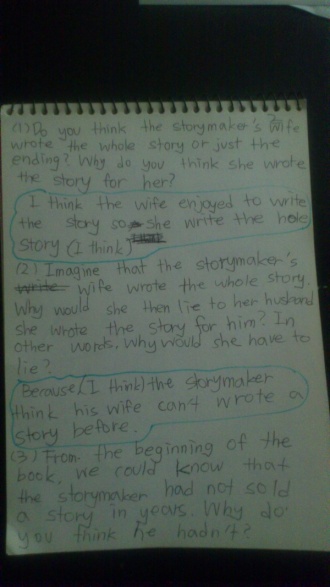 (1) Do you think the storymaker's wife
wrote the whole story or just the
ending? Why do you think she wrote
the story for her?
I think the wife enjoyed to write
the story so she write the hole
story (I think)
(2) Imagine that the storymaker's
wife wrote the whole story.
Why would she then lie to her husband
she wrote the story for him? In
other words, Why would she have to
lie?
Because (I think) the storymaker
think his wife can't wrote a
story before.
(3) From the beginning of the
book, we could know that
the storymaker had not sold
a story in years. Why do
you think he hadn't?